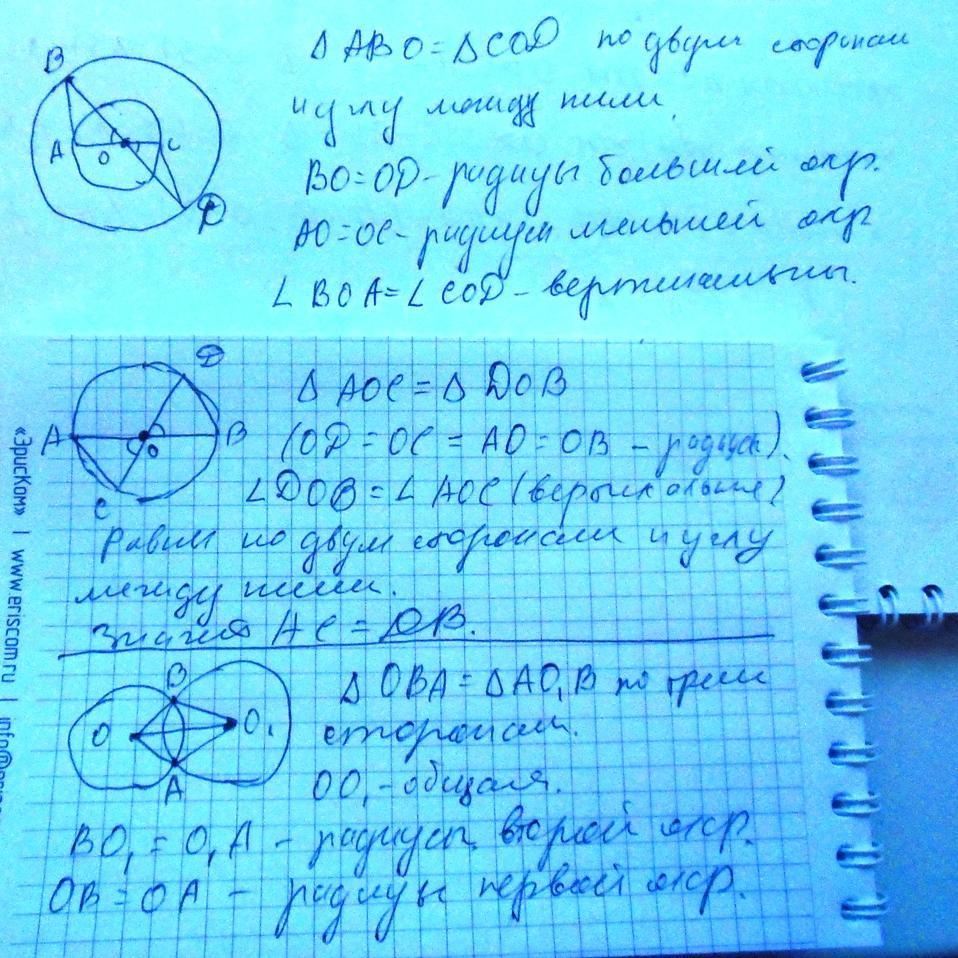 B
A
O
C
D
Δ ABO = Δ COD по двум сторонам
и углу между ними.
BO = OD - радиусы большей окр.
AO = OC - радиусы меньшей окр
∠ BOA = ∠ COD - вертикальны.
D
A
B
O
C
Δ AOC = Δ DOB
(OD = OC = AO = OB - радиусы).
∠DOB = ∠ AOC (вертикальные)
Равны по двум сторонам и углу
между ними.
Значит AC = DB.
B
O
O₁
A
Δ OBA = Δ AO₁B по трем
сторонам.
OO₁ - общая.
BO₁ = O₁A - радиусы второй окр.
OB = OA - радиусы первой окр.
«ЭрисКом» | www.eriscom.ru | info@